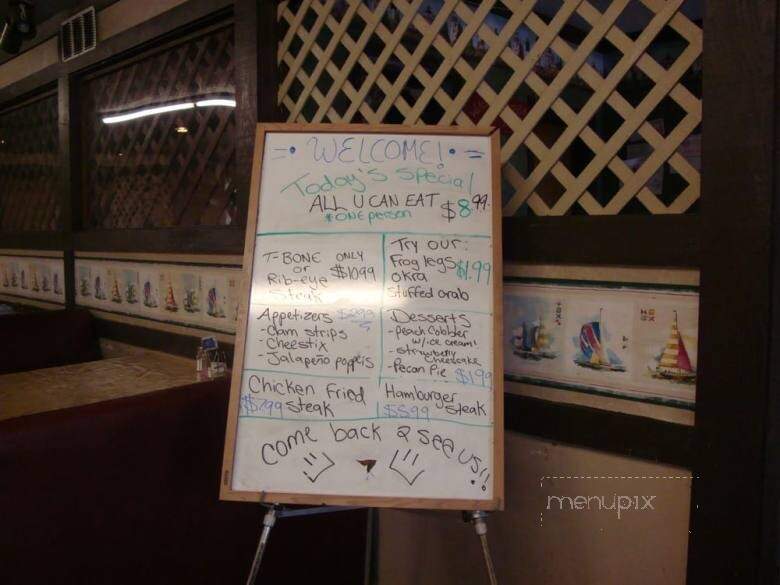 WELCOME!
Today's Special
ALL U CAN EAT $8.99
*ONE person
T-BONE ONLY
or $10.99
Rib-eye
Steak
Try our:
Frog legs $1.99
okra
Stuffed crab
Appetizers $2.99
-Clam strips
-Cheestix
-Jalapeño poppers
Desserts
-peach Cobbler
w/ice cream!
-strawberry
cheesecake
-Pecan Pie $1.99
Chicken Fried
$7.99 steak
Hamburger
$5.99 steak
Come back 2 see us!!
menupix